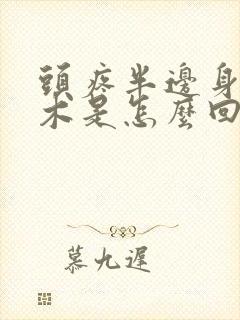 頭疼半邊身
木是怎麼回
慕九遲